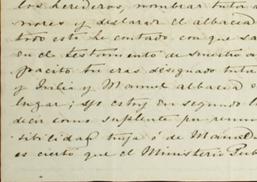 los herederos, nombrar tuto
nores y declarar el albacea
todo esto lo contado con que sa
en el testamento de nuestro a
pacito tu eras designado tuto
y Julia y Manuel albacea e
lugar; yo estoy en segundo l
decir como suplente por renun
sibilidad tuya ó de Manuel
es cierto que el Ministerio Púb